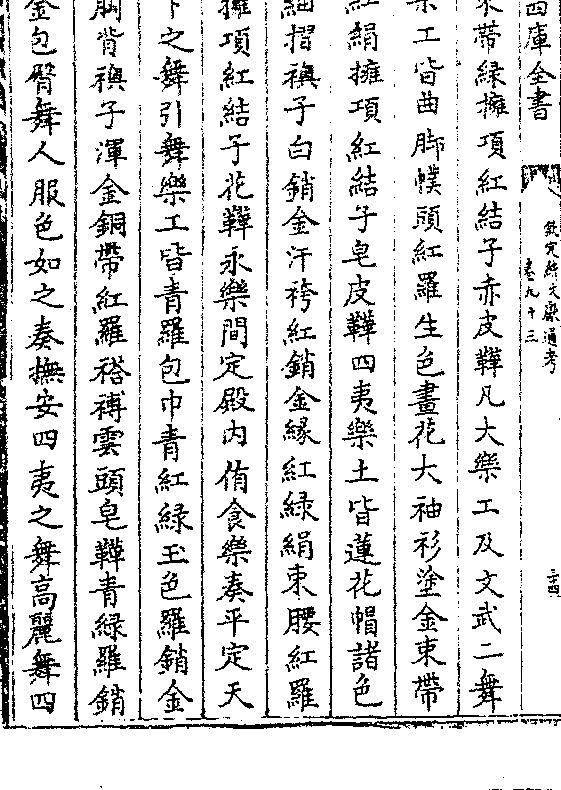 四庫全書
欽定續文獻通考
卷九十三
二十四
束帶緑擁項紅結子赤皮鞾凡大樂工及文武二舞
樂工皆曲脚幞頭紅羅生色畫花大袖衫塗金束帶
紅絹擁項紅結子皂皮鞾四夷樂士皆蓮花帽諸色
細摺襖子白銷金汗袴紅銷金緣紅緑絹束腰紅羅
擁項紅結子花鞾永樂間定殿内侑食樂奏平定天
下之舞引舞樂工皆青羅包巾青紅緑玉色羅銷金
胸背襖子渾金銅帶紅羅褡𧞤雲頭皂鞾青緑羅銷
金包臀舞人服色如之奏撫安四夷之舞高麗舞四